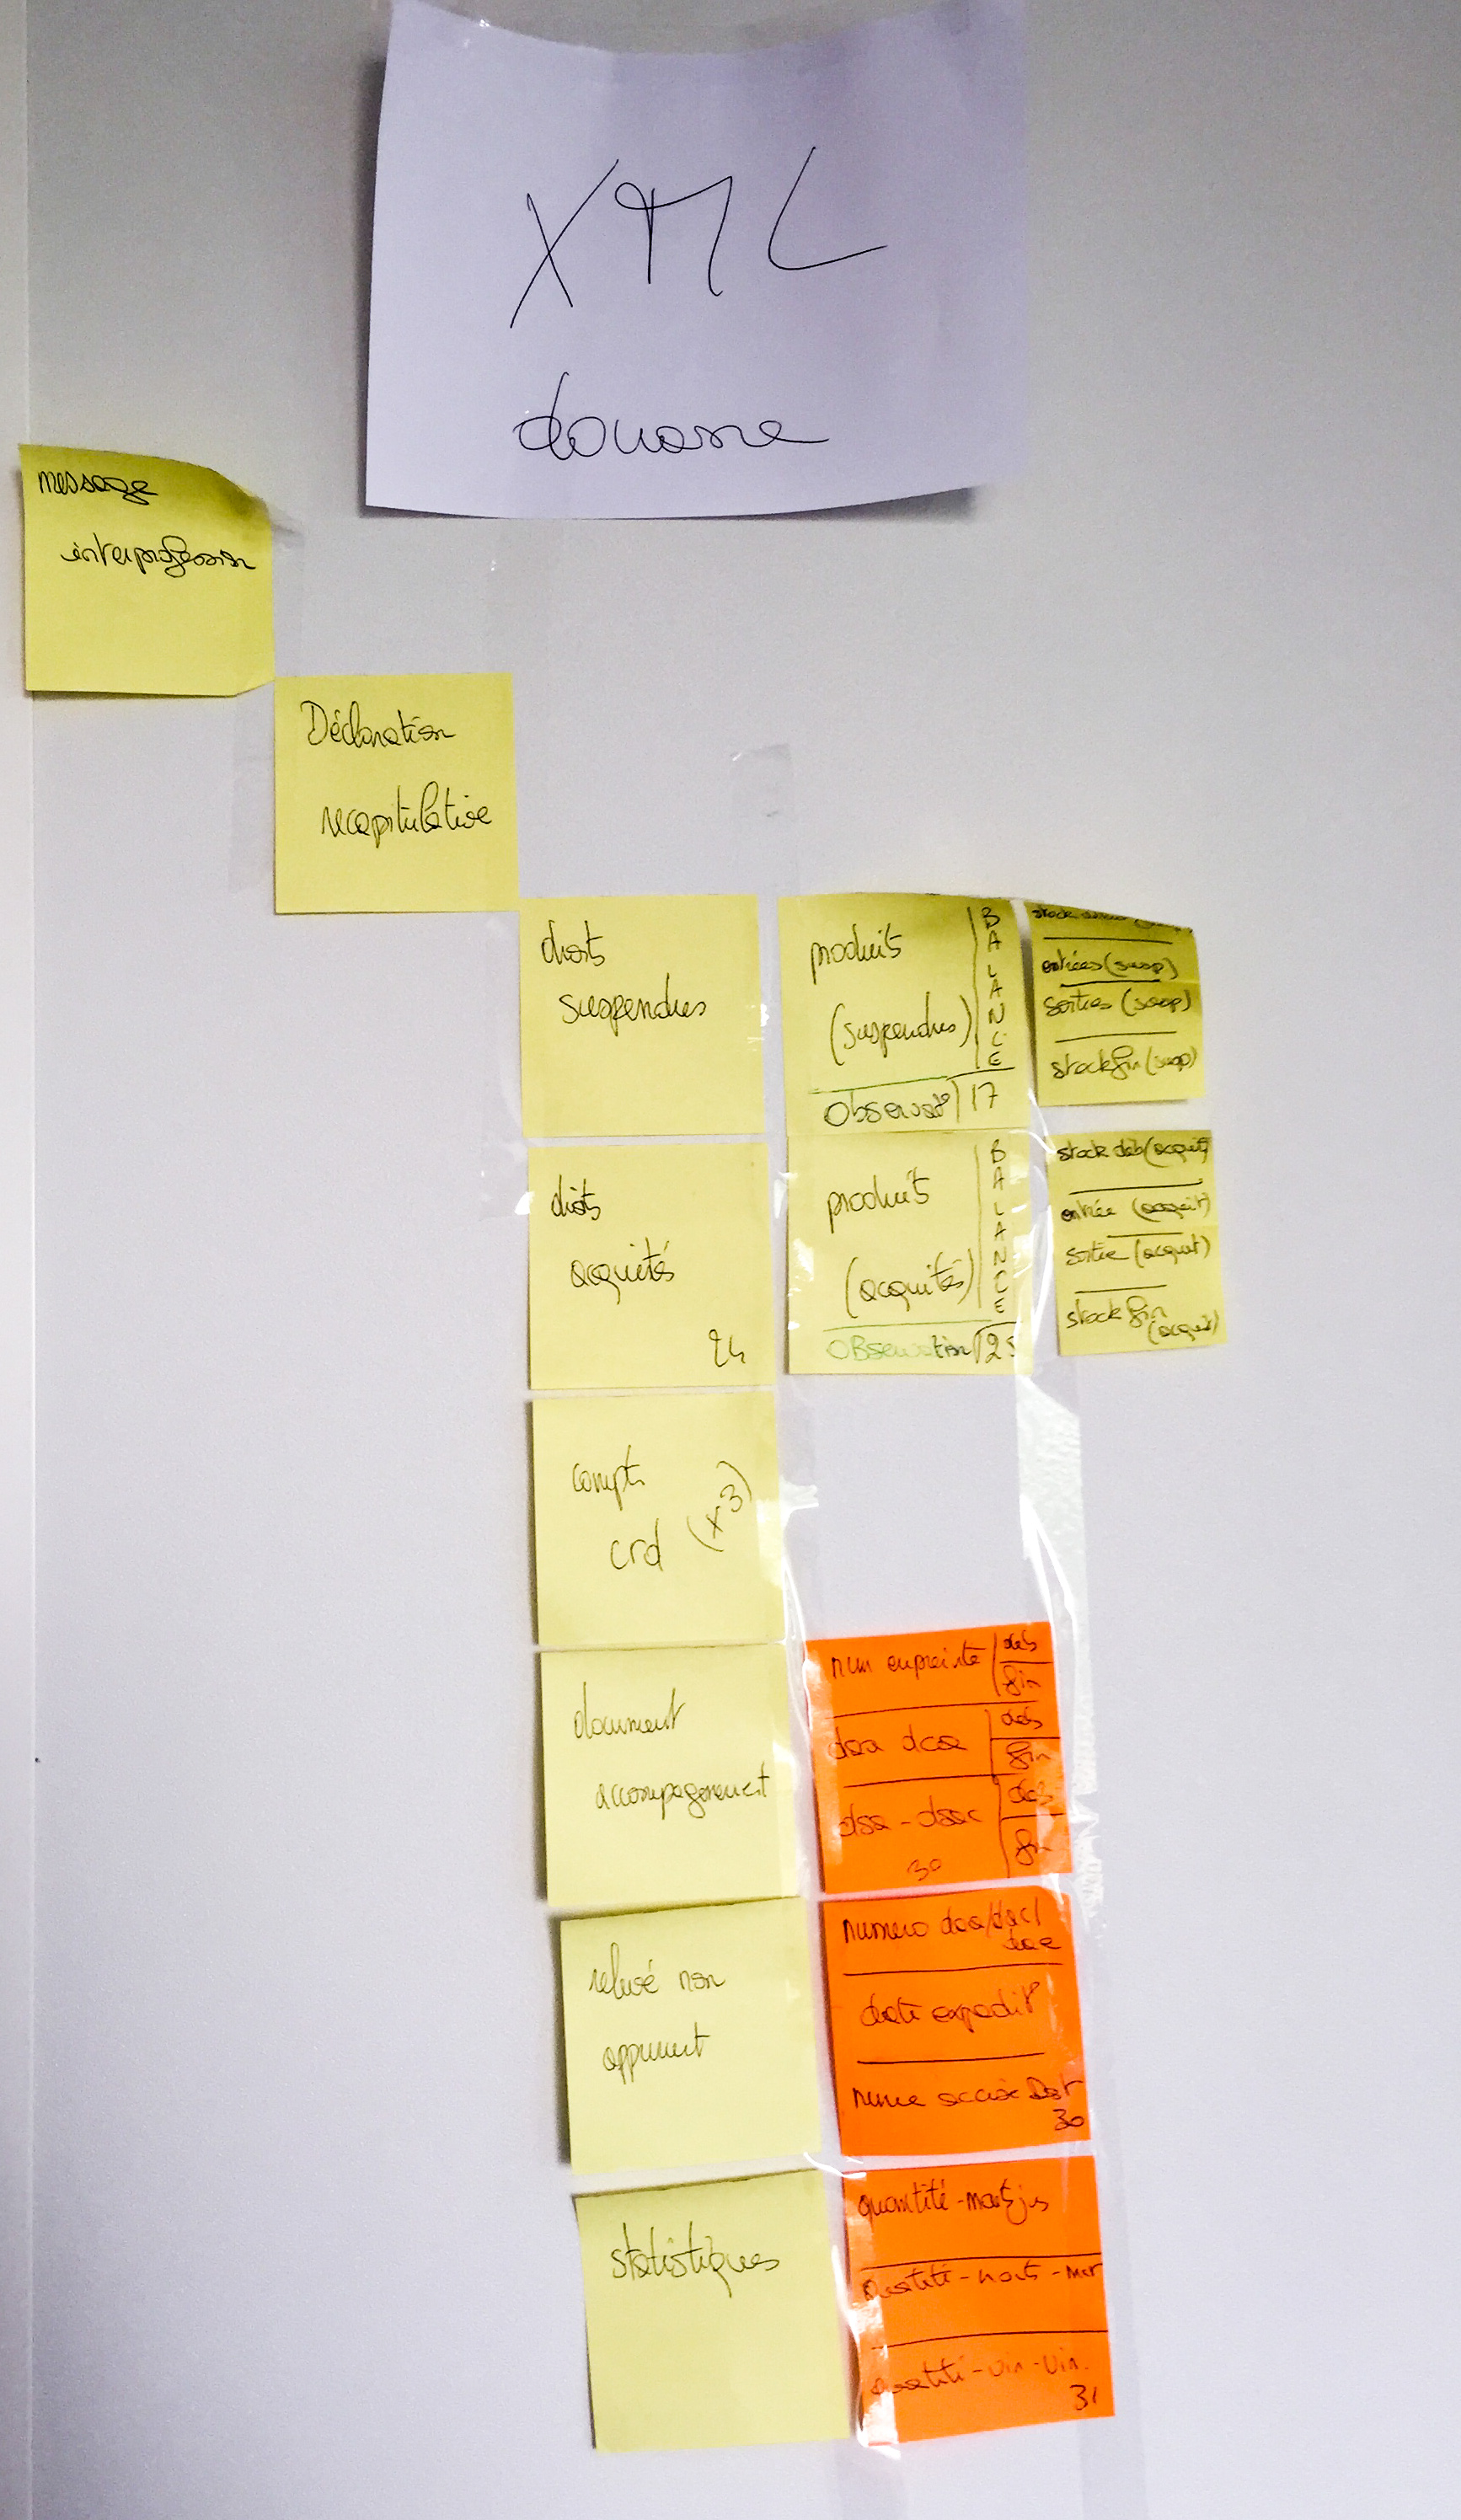 XML
douane
message
interprofession
Déclaration
recapitulative
droits
suspendus
produits
(suspendus)
BALANCE
Observat°
17
stock
entrées (susp)
sorties (susp)
stock fin (susp)
droits
acquités
24
produits
(acquités)
BALANCE
OBservation
25
stock déb (acquit)
entrée (acquit)
sortie (acquit)
stock fin
(acquit)
compte
crd (x3)
document
accompagnement
num empreinte
deb
fin
daa dca
deb
fin
dsa - dsac
deb
fin
30
relevé non
appurement
numero daa/dac/
dae
date expedit°
nume accise Dest
30
statistiques
quantité - mout - jus
quantité - mouts - mcr
quantité - vin - vin.
31